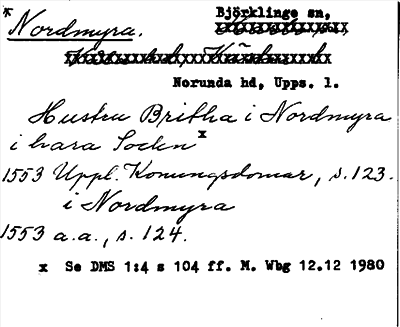 * Nordmyra. Björklinge sn,
Norunda hd, Upps. l.
Hustru Britha i Nordmyra
i hara Sockn x
1553 Uppl. Konungsdomar, s. 123.
i Nordmyra
1553 a.a., s. 124.
x Se DMS 1:4 s 104 ff. M. Wbg 12.12 1980